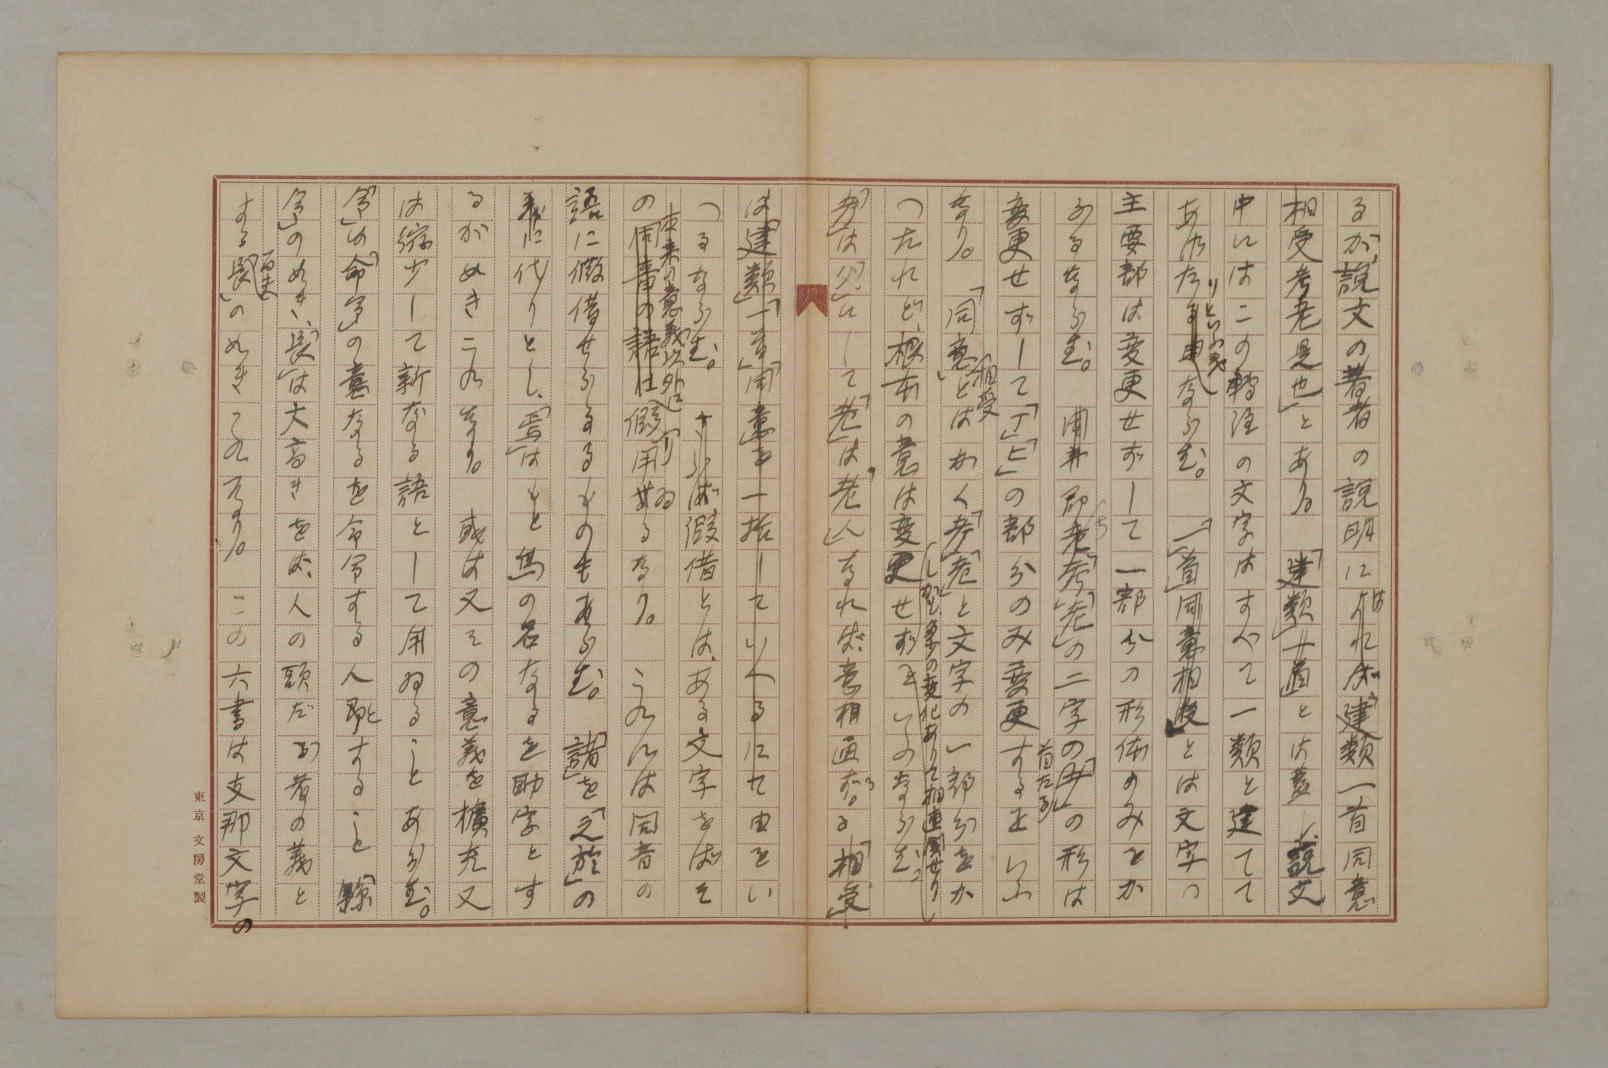 るが、説文の著者の説明によれば「建類一首同意
は
相受考老是也」とあり。「建類一首」とは蓋し説文
中にはこの轉注の文字はすべて一類と建てて
あり
りといふ
ならむ。「一首同意相受」とは文字の
主要部は変更せずして一部分の形体のみをか
ふるならむ。即ち「考」「老」の二字の
の形は
首たる
変更せずして
の部分のみ変更する
いふ
なり。「同意
相受
」とはかく「考」「老」と文字の一部分をか
へたれど、根本の意は変更せず
いふならむ
しかも
の変化ありて相連関せり
「考」は「父」にして「老」は「老人」なれば、意相通ず。「相受」
は「建類」「一首」「同意」を一括していへるにて
をい
へるならむ。
假借とは、ある文字をばそ
の同音の語に假用するなり。これには同音の
本来の意義以外に
語に假借せらるるものもあらむ。「諸」を「之於」の
義に代りとし、「焉」はもと鳥の名なるを助字とす
るが如きこれなり。或は又その意義を擴充又
は縮少して新なる語として用ゐることあらむ。
「令」の「命令」の意なるを命令する人
とすること「縣
令」の如き、「長」は大高きをば、人の頭だつ者の義と
する「長」の如きこれなり。この六書は支那文字の
東京 文房堂製